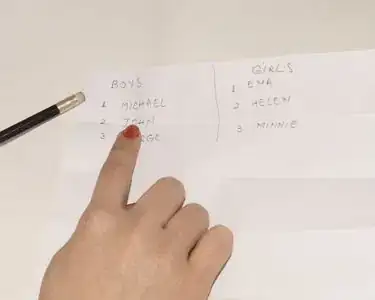 BOY'S
1 MICHAEL
2 JOHN
3
GIRL'S
1 EMA
2 HELEN
3 MINNIE